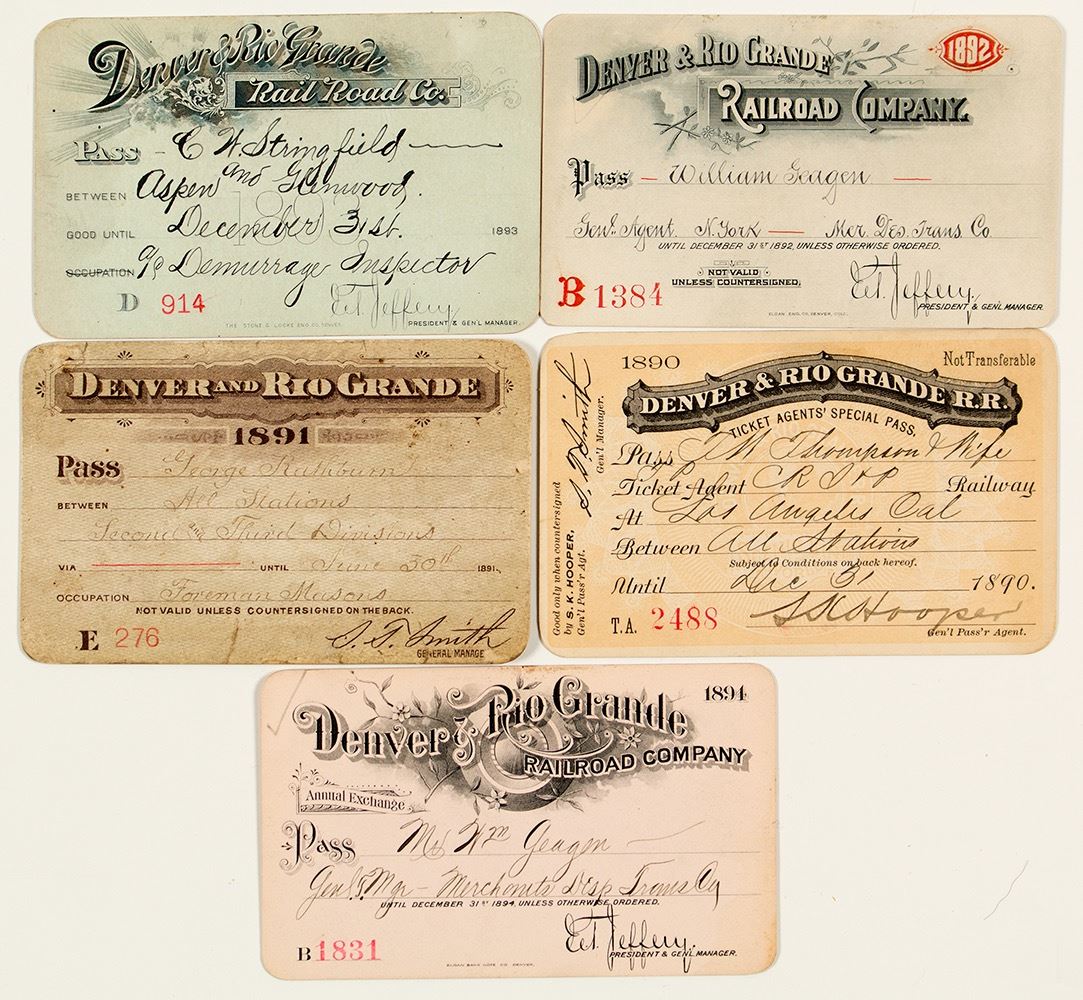 Denver & Rio Grande
Rail Road Co.
Pass - C W. Stringfield
BETWEEN Aspen and Glenwood,
GOOD UNTIL December 31st. 1893
OCCUPATION Demurrage Inspector
D 914 E.T. Jeffery
PRESIDENT & GEN'L MANAGER.
THE STONE & LOCKE ENG. CO. DENVER.
DENVER & RIO GRANDE
1892
RAILROAD COMPANY.
Pass - William Geagen -
Genl. Agent N. York - Mer. Des. Trans. Co
UNTIL DECEMBER 31ST 1892, UNLESS OTHERWISE ORDERED.
NOT VALID
UNLESS COUNTERSIGNED,
B 1384 E.T. Jeffery
PRESIDENT & GEN'L MANAGER.
SLOAN ENG. CO. DENVER, COLO.
DENVER AND RIO GRANDE
1891
Pass George Rathburn
BETWEEN All Stations
Second and Third Divisions
VIA UNTIL June 30th 1891.
OCCUPATION Foreman Masons
NOT VALID UNLESS COUNTERSIGNED ON THE BACK.
E 276 S. T. Smith
GENERAL MANAGE
1890 Not Transferable
DENVER & RIO GRANDE R.R.
TICKET AGENTS' SPECIAL PASS.
Pass Thompson & Wife
Ticket Agent C R I & P Railway
At Los Angeles Cal
Between All Stations
Subject to Conditions on back hereof.
Until Dec 31 1890.
T.A. 2488 S K Hooper
Gen'l Pass'r Agent.
Good only when countersigned
by S. K. HOOPER,
Gen'l Pass'r Agt.
S. T. Smith
Gen'l Manager.
Denver & Rio Grande 1894
RAILROAD COMPANY
Annual Exchange
Pass Mr Wm Geagen -
Genl. Mgr - Merchants Desp Trans Cy
UNTIL DECEMBER 31ST 1894, UNLESS OTHERWISE ORDERED.
B 1831 E.T. Jeffery.
PRESIDENT & GEN'L MANAGER.
SLOAN BANK NOTE CO. DENVER.